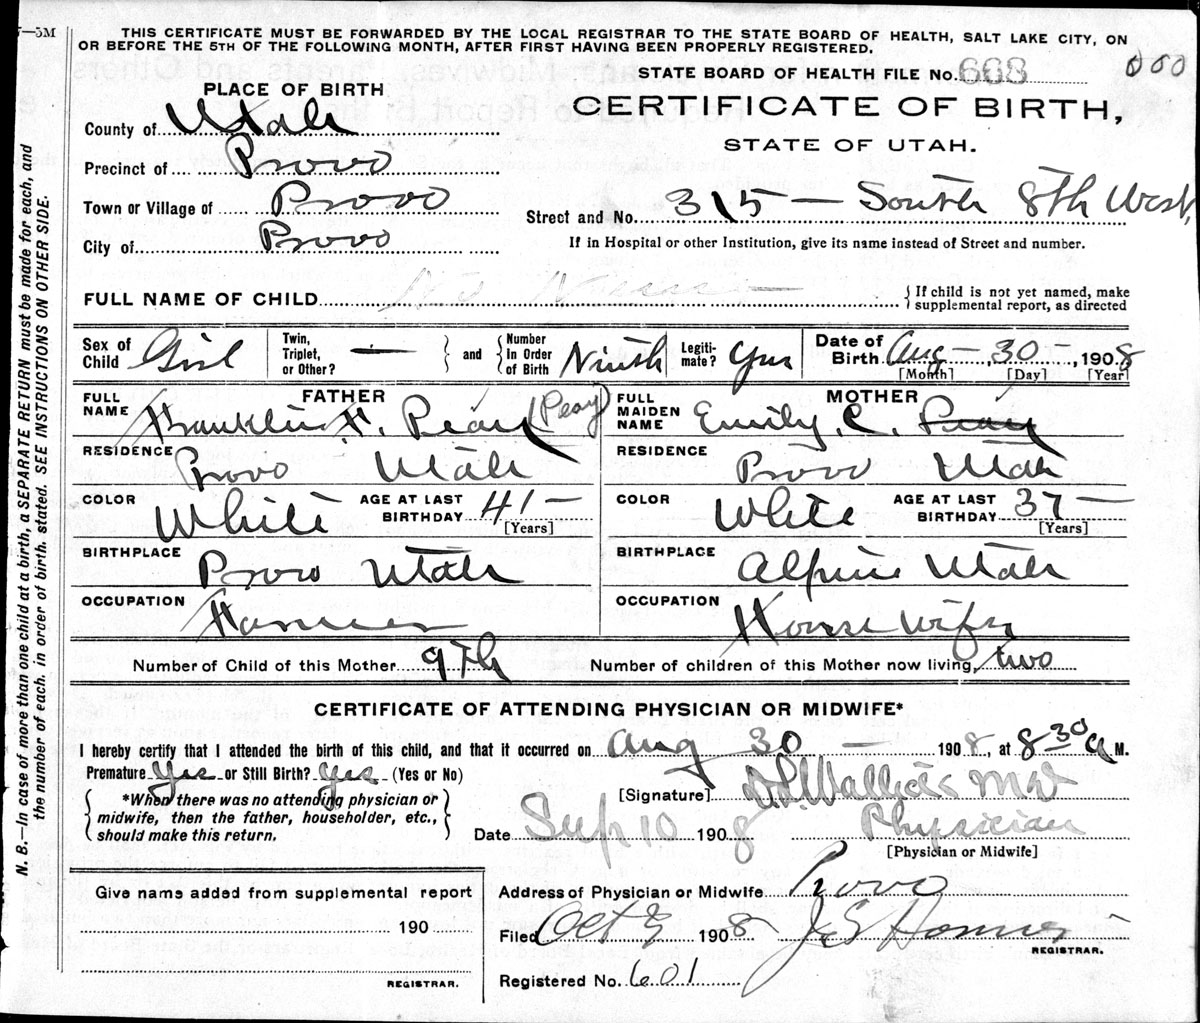 —5M
THIS CERTIFICATE MUST BE FORWARDED BY THE LOCAL REGISTRAR TO THE STATE BOARD OF HEALTH, SALT LAKE CITY, ON
OR BEFORE THE 5TH OF THE FOLLOWING MONTH, AFTER FIRST HAVING BEEN PROPERLY REGISTERED.
STATE BOARD OF HEALTH FILE No. 668
000
PLACE OF BIRTH
CERTIFICATE OF BIRTH,
STATE OF UTAH.
County of Utah
Precinct of Provo
Town or Village of Provo
Street and No. 315 — South 8th West,
City of Provo
If in Hospital or other Institution, give its name instead of Street and number.
FULL NAME OF CHILD No Name
{ If child is not yet named, make
supplemental report, as directed
Sex of Child Girl
Twin, Triplet, or Other? —
} and { Number In Order of Birth Ninth
Legiti-mate? Yes
Date of Birth Aug — 30 — , 1908
[Month] [Day] [Year]
FATHER
FULL NAME Franklin F. Peay (Peay)
RESIDENCE Provo Utah
COLOR White
AGE AT LAST BIRTHDAY 41 —
[Years]
BIRTHPLACE Provo Utah
OCCUPATION Farmer
MOTHER
FULL MAIDEN NAME Emily. C. Peay
RESIDENCE Provo Utah
COLOR White
AGE AT LAST BIRTHDAY 37 —
[Years]
BIRTHPLACE Alpine Utah
OCCUPATION House Wife
Number of Child of this Mother 9th
Number of children of this Mother now living, two
CERTIFICATE OF ATTENDING PHYSICIAN OR MIDWIFE*
I hereby certify that I attended the birth of this child, and that it occurred on Aug 30 — 1908, at 8 30 a M.
Premature Yes or Still Birth? Yes (Yes or No)
{ *When there was no attending physician or
midwife, then the father, householder, etc.,
should make this return. }
[Signature]
Date Sep 10 1908 Physician
[Physician or Midwife]
Give name added from supplemental report
190
REGISTRAR.
Address of Physician or Midwife Provo
Filed Oct 9 1908
REGISTRAR.
Registered No. 601
N. B.—In case of more than one child at a birth, a SEPARATE RETURN must be made for each, and
the number of each, in order of birth, stated. SEE INSTRUCTIONS ON OTHER SIDE.